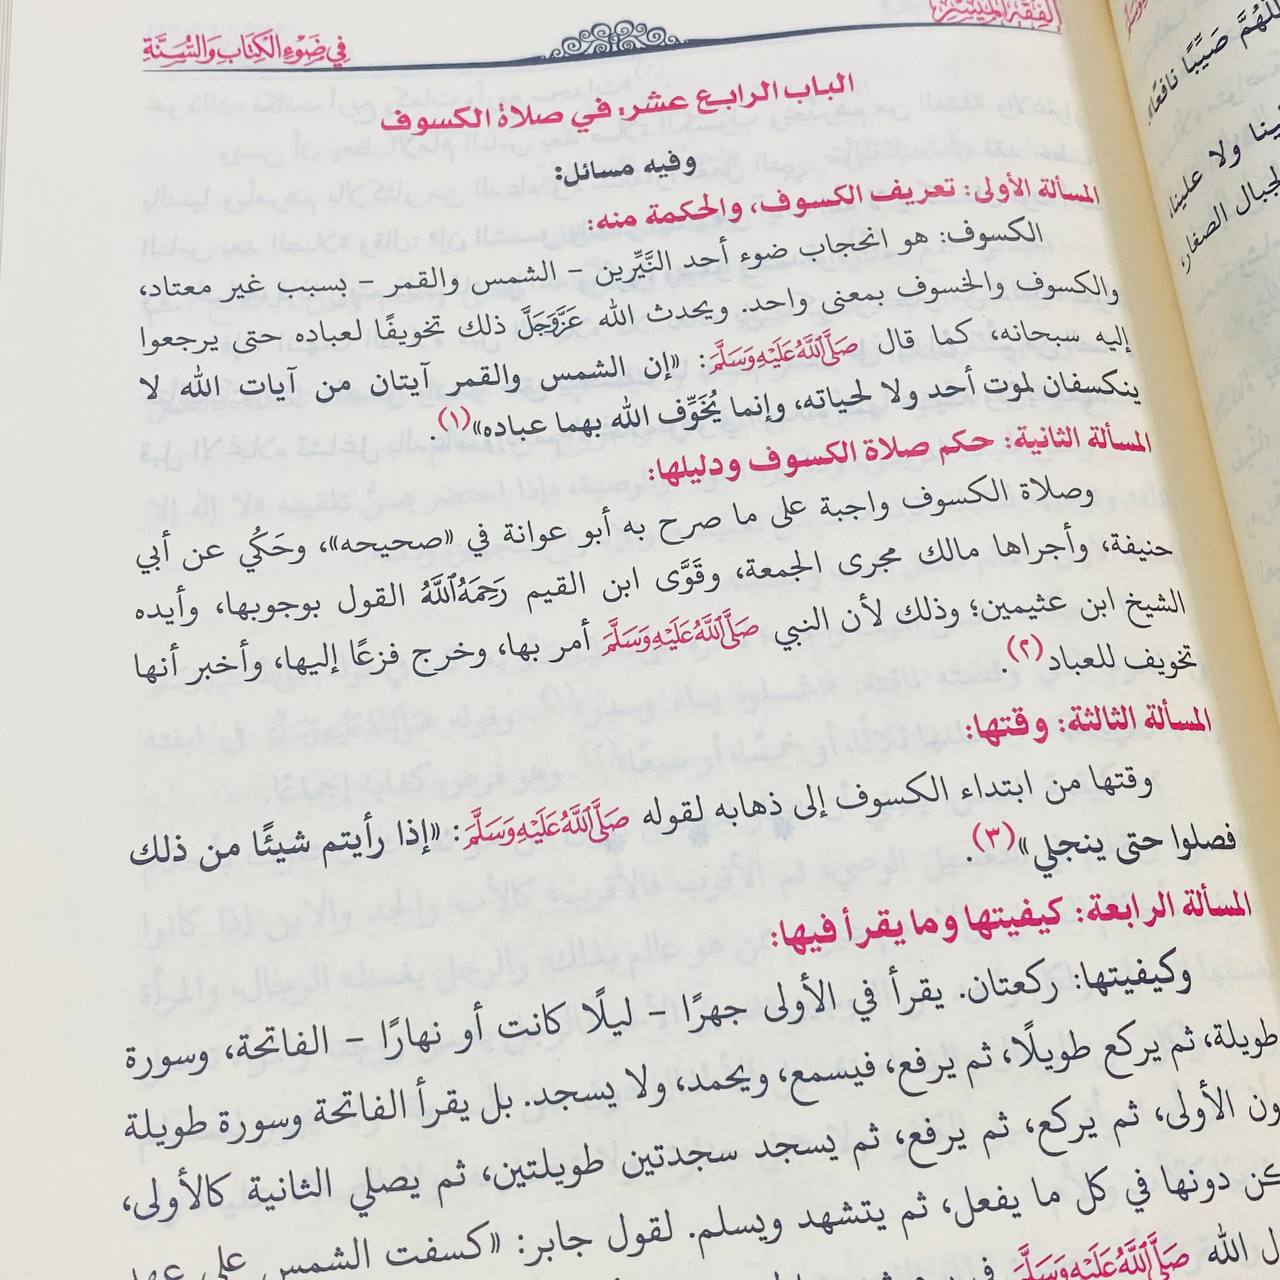 الفقه الميسر
في ضوء الكتاب والسنة
الباب الرابع عشر: في صلاة الكسوف
وفيه مسائل:
المسألة الأولى: تعريف الكسوف، والحكمة منه:
الكسوف: هو انحجاب ضوء أحد النَّيِّرين – الشمس والقمر – بسبب غير معتاد،
والكسوف والخسوف بمعنى واحد. ويحدث الله عَزَّوَجَلَّ ذلك تخويفًا لعباده حتى يرجعوا
إليه سبحانه، كما قال صَلَّى اللَّهُ عَلَيْهِ وَسَلَّمَ: «إن الشمس والقمر آيتان من آيات الله لا
ينكسفان لموت أحد ولا لحياته، وإنما يُخَوِّف الله بهما عباده»(١).
المسألة الثانية: حكم صلاة الكسوف ودليلها:
وصلاة الكسوف واجبة على ما صرح به أبو عوانة في «صحيحه»، وحَكُي عن أبي
حنيفة، وأجراها مالك مجرى الجمعة، وقوَّى ابن القيم رَحِمَهُ اللَّهُ القول بوجوبها، وأيده
الشيخ ابن عثيمين؛ وذلك لأن النبي صَلَّى اللَّهُ عَلَيْهِ وَسَلَّمَ أمر بها، وخرج فزعًا إليها، وأخبر أنها
تخويف للعباد(٢).
المسألة الثالثة: وقتها:
وقتها من ابتداء الكسوف إلى ذهابه لقوله صَلَّى اللَّهُ عَلَيْهِ وَسَلَّمَ: «إذا رأيتم شيئًا من ذلك
فصلوا حتى ينجلي»(٣).
المسألة الرابعة: كيفيتها وما يقرأ فيها:
وكيفيتها: ركعتان. يقرأ في الأولى جهرًا – ليلًا كانت أو نهارًا – الفاتحة، وسورة
طويلة، ثم يركع طويلًا، ثم يرفع، فيسمع، ويحمد، ولا يسجد. بل يقرأ الفاتحة وسورة طويلة
ون الأولى، ثم يركع، ثم يرفع، ثم يسجد سجدتين طويلتين، ثم يصلي الثانية كالأولى،
كن دونها في كل ما يفعل، ثم يتشهد ويسلم. لقول جابر: «كسفت الشمس على عهد
ل الله صَلَّى اللَّهُ عَلَيْهِ وَسَلَّمَ في
للهم صَيِّبًا نافعًا
ينا ولا علينا،
لجبال الصغار،